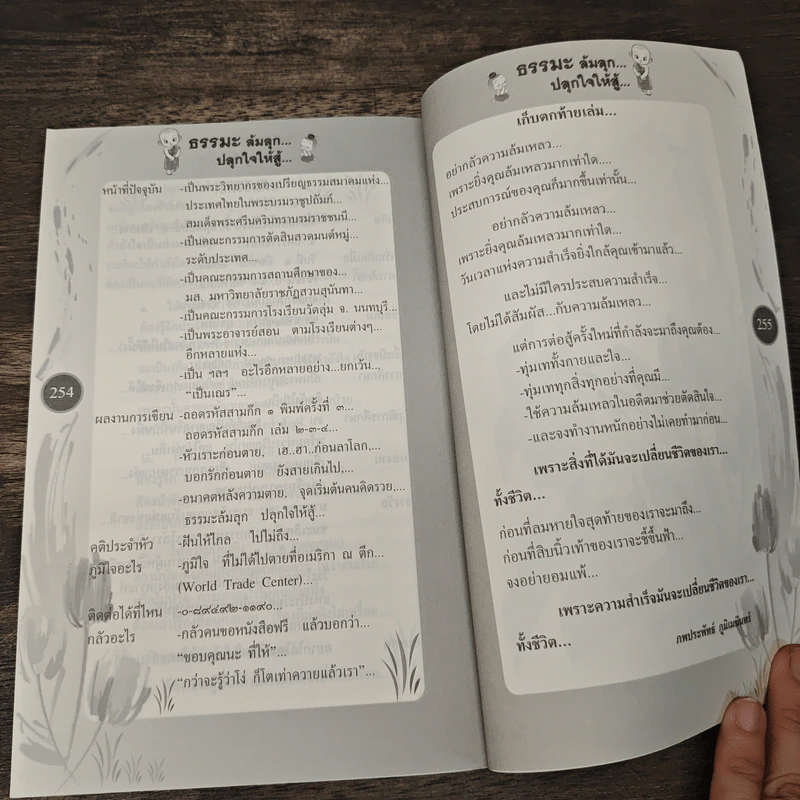 ธรรมะ ล้มลุก...
ปลุกใจให้สู้...
หน้าที่ปัจจุบัน -เป็นพระวิทยากรของเปรียญธรรมสมาคมแห่ง...
ประเทศไทยในพระบรมราชูปถัมภ์...
สมเด็จพระศรีนครินทราบรมราชชนนี...
-เป็นคณะกรรมการตัดสินสวดมนต์หมู่...
ระดับประเทศ...
-เป็นคณะกรรมการสถานศึกษาของ...
มส. มหาวิทยาลัยราชภัฏสวนสุนันทา...
-เป็นคณะกรรมการโรงเรียนวัดลุ่ม จ. นนทบุรี...
-เป็นพระอาจารย์สอน ตามโรงเรียนต่างๆ...
อีกหลายแห่ง...
-เป็น ฯลฯ อะไรอีกหลายอย่าง...ยกเว้น...
“เป็นเณร”...
254
ผลงานการเขียน -ถอดรหัสสามก๊ก ๑ พิมพ์ครั้งที่ ๓...
ถอดรหัสสามก๊ก เล่ม ๒-๓-๔...
-หัวเราะก่อนตาย, เฮ..ฮา..ก่อนลาโลก,...
บอกรักก่อนตาย ยังสายเกินไป,...
-อนาคตหลังความตาย, จุดเริ่มต้นคนคิดรวย,...
ธรรมะล้มลุก ปลุกใจให้สู้...
คติประจำหัว -ฝืนให้ไกล ไปไม่ถึง...
ภูมิใจอะไร -ภูมิใจ ที่ไม่ได้ไปตายที่อเมริกา ณ ตึก...
(World Trade Center)...
ติดต่อได้ที่ไหน -๐-๘๙๔๙๒-๑๑๙๐...
กลัวอะไร -กลัวคนขอหนังสือฟรี แล้วบอกว่า...
“ขอบคุณนะ ที่ให้”...
“กว่าจะรู้ว่าโง่ ก็โตเท่าควายแล้วเรา”...
ธรรมะ ล้มลุก...
ปลุกใจให้สู้...
เก็บตกท้ายเล่ม...
อย่ากลัวความล้มเหลว...
เพราะยิ่งคุณล้มเหลวมากเท่าใด....
ประสบการณ์ของคุณก็มากขึ้นเท่านั้น...
อย่ากลัวความล้มเหลว...
เพราะยิ่งคุณล้มเหลวมากเท่าใด...
วันเวลาแห่งความสำเร็จยิ่งใกล้คุณเข้ามาแล้ว...
และไม่มีใครประสบความสำเร็จ...
โดยไม่ได้สัมผัส...กับความล้มเหลว...
255
แต่การต่อสู้ครั้งใหม่ที่กำลังจะมาถึงคุณต้อง...
-ทุ่มเททั้งกายและใจ...
-ทุ่มเททุกสิ่งทุกอย่างที่คุณมี...
-ใช้ความล้มเหลวในอดีตมาช่วยตัดสินใจ...
-และจงทำงานหนักอย่างไม่เคยทำมาก่อน...
เพราะสิ่งที่ได้มันจะเปลี่ยนชีวิตของเรา...
ทั้งชีวิต...
ก่อนที่ลมหายใจสุดท้ายของเราจะมาถึง...
ก่อนที่สิบนิ้วเท้าของเราจะชี้ขึ้นฟ้า...
จงอย่ายอมแพ้...
เพราะความสำเร็จมันจะเปลี่ยนชีวิตของเรา...
ทั้งชีวิต...
ภพประพัทธ์